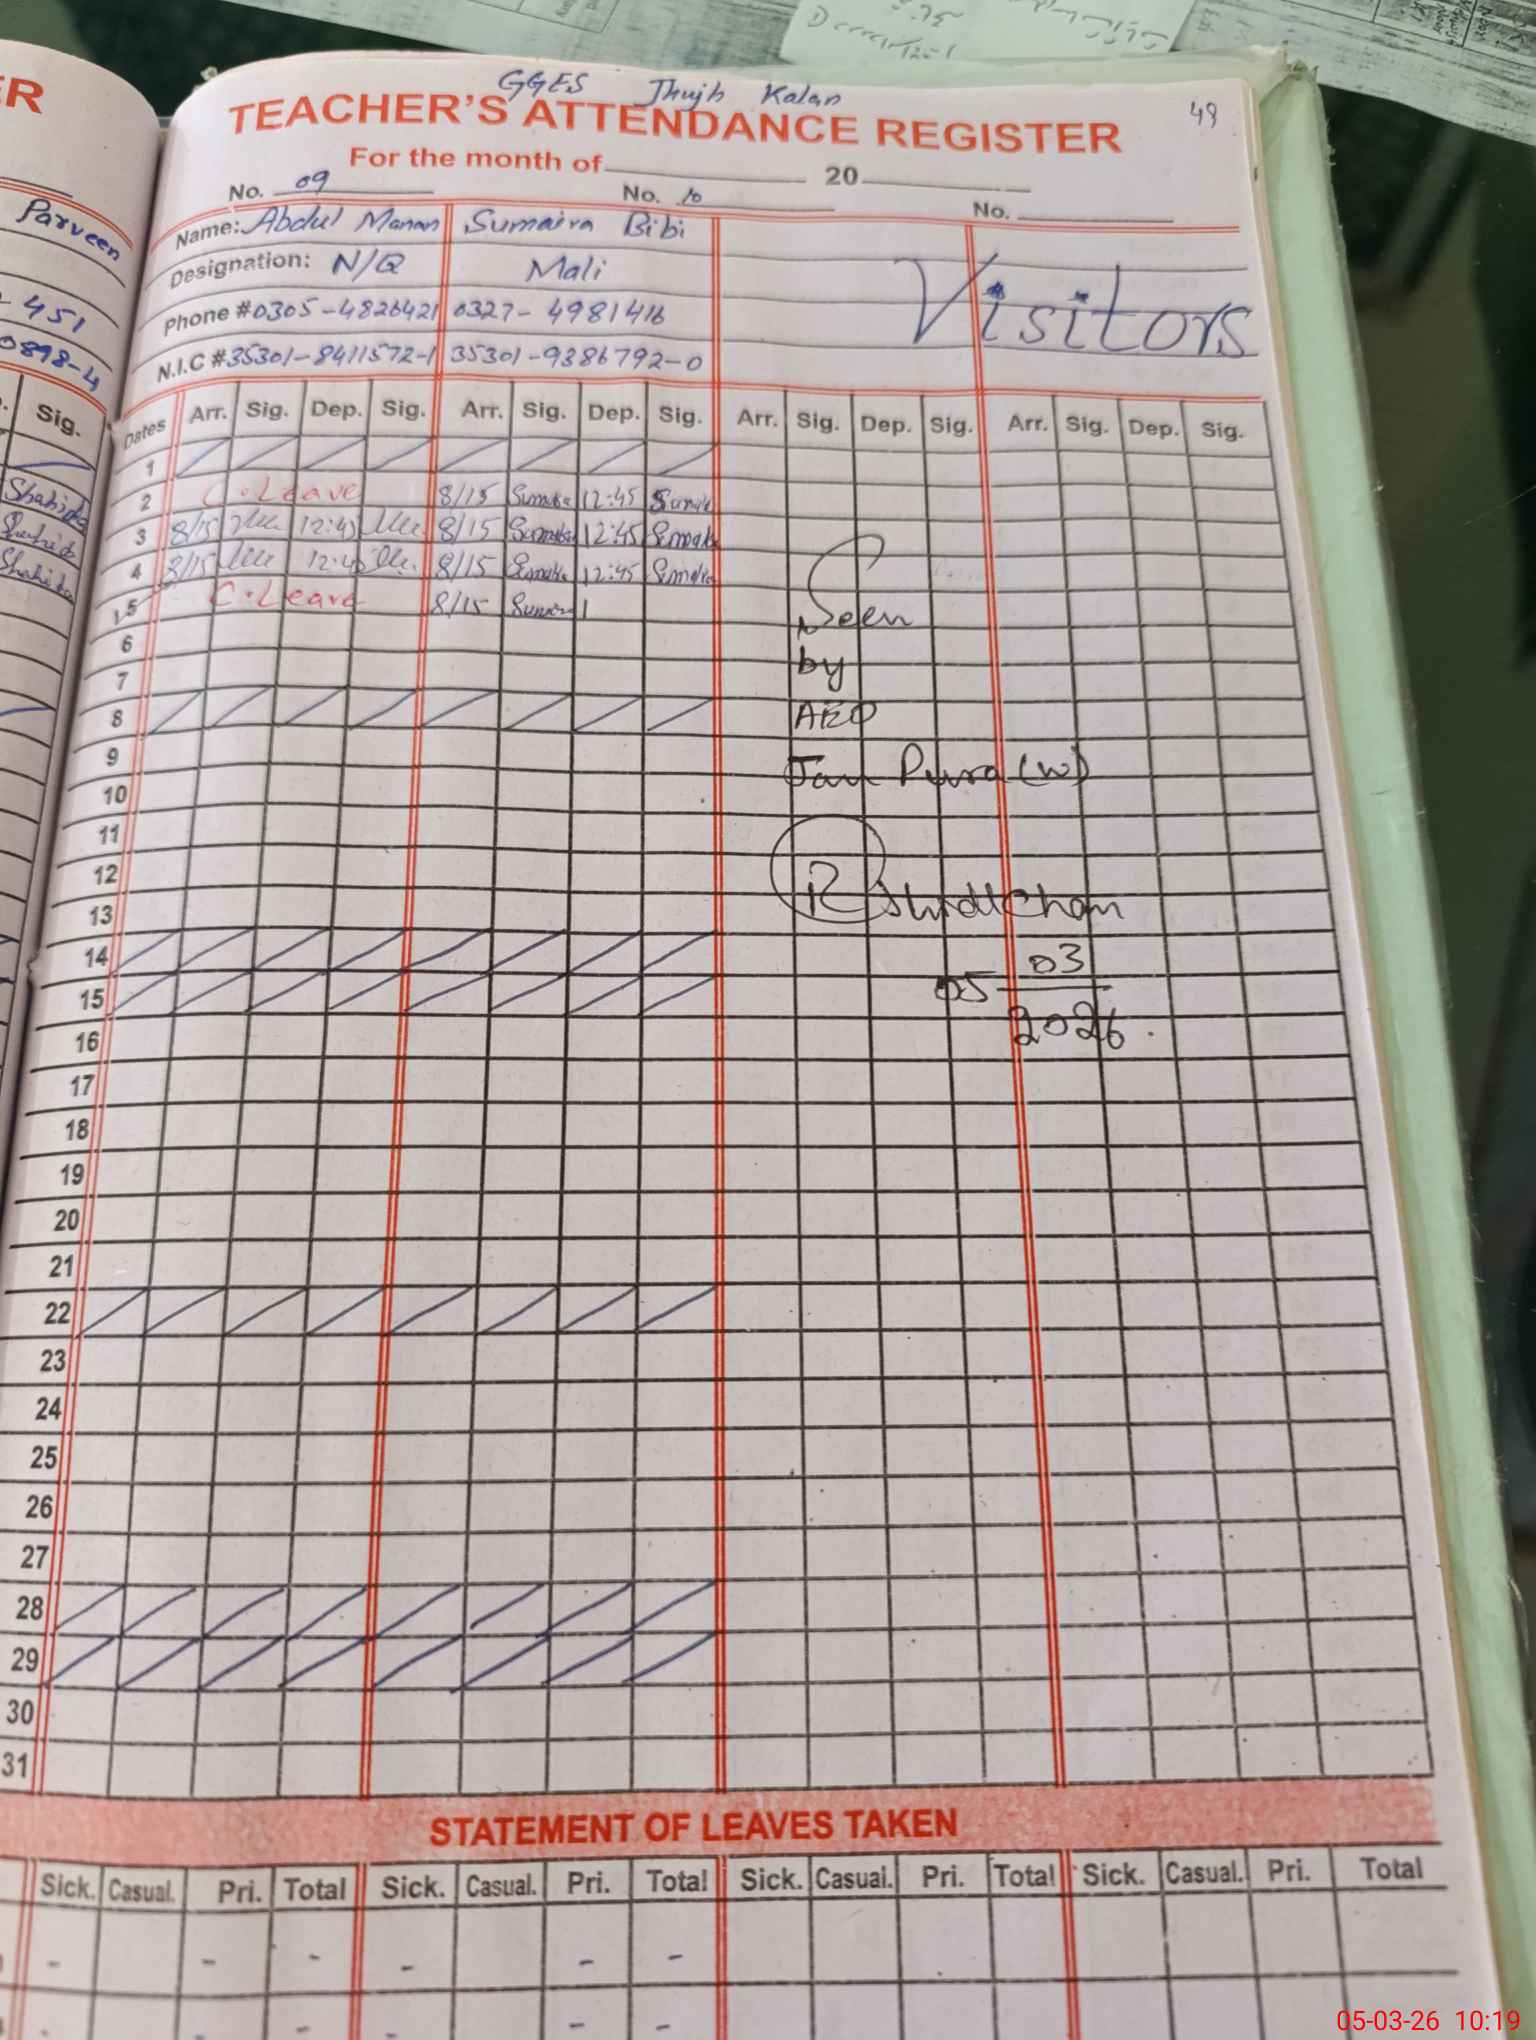 GGES Jhujh Kalan
49
TEACHER'S ATTENDANCE REGISTER
For the month of 20
No. 09 No. 10 No.
Name: Abdul Manan Sumaira Bibi
Designation: N/Q Mali
Visitors
Phone #0305-4826421 0327-4981416
N.I.C #35301-8411572-1 35301-9386792-0
Dates Arr. Sig. Dep. Sig. Arr. Sig. Dep. Sig. Arr. Sig. Dep. Sig. Arr. Sig. Dep. Sig.
1
2 C.Leave 8/15 12:45
3 8/15 12:45 8/15 12:45
4 8/15 12:45 8/15 12:45
5 C.Leave 8/15
Seen
6
by
7
8
AEO
9
10
11
12
13
14
03
15
05
2026.
16
17
18
19
20
21
22
23
24
25
26
27
28
29
30
31
STATEMENT OF LEAVES TAKEN
Sick. Casual. Pri. Total Sick. Casual. Pri. Total Sick. Casual. Pri. Total Sick. Casual. Pri. Total
- - - - - -
- - - -
ER
Parveen
451
0898-4
Sig.
Shahida
Shahida
Shahida
05-03-26 10:19